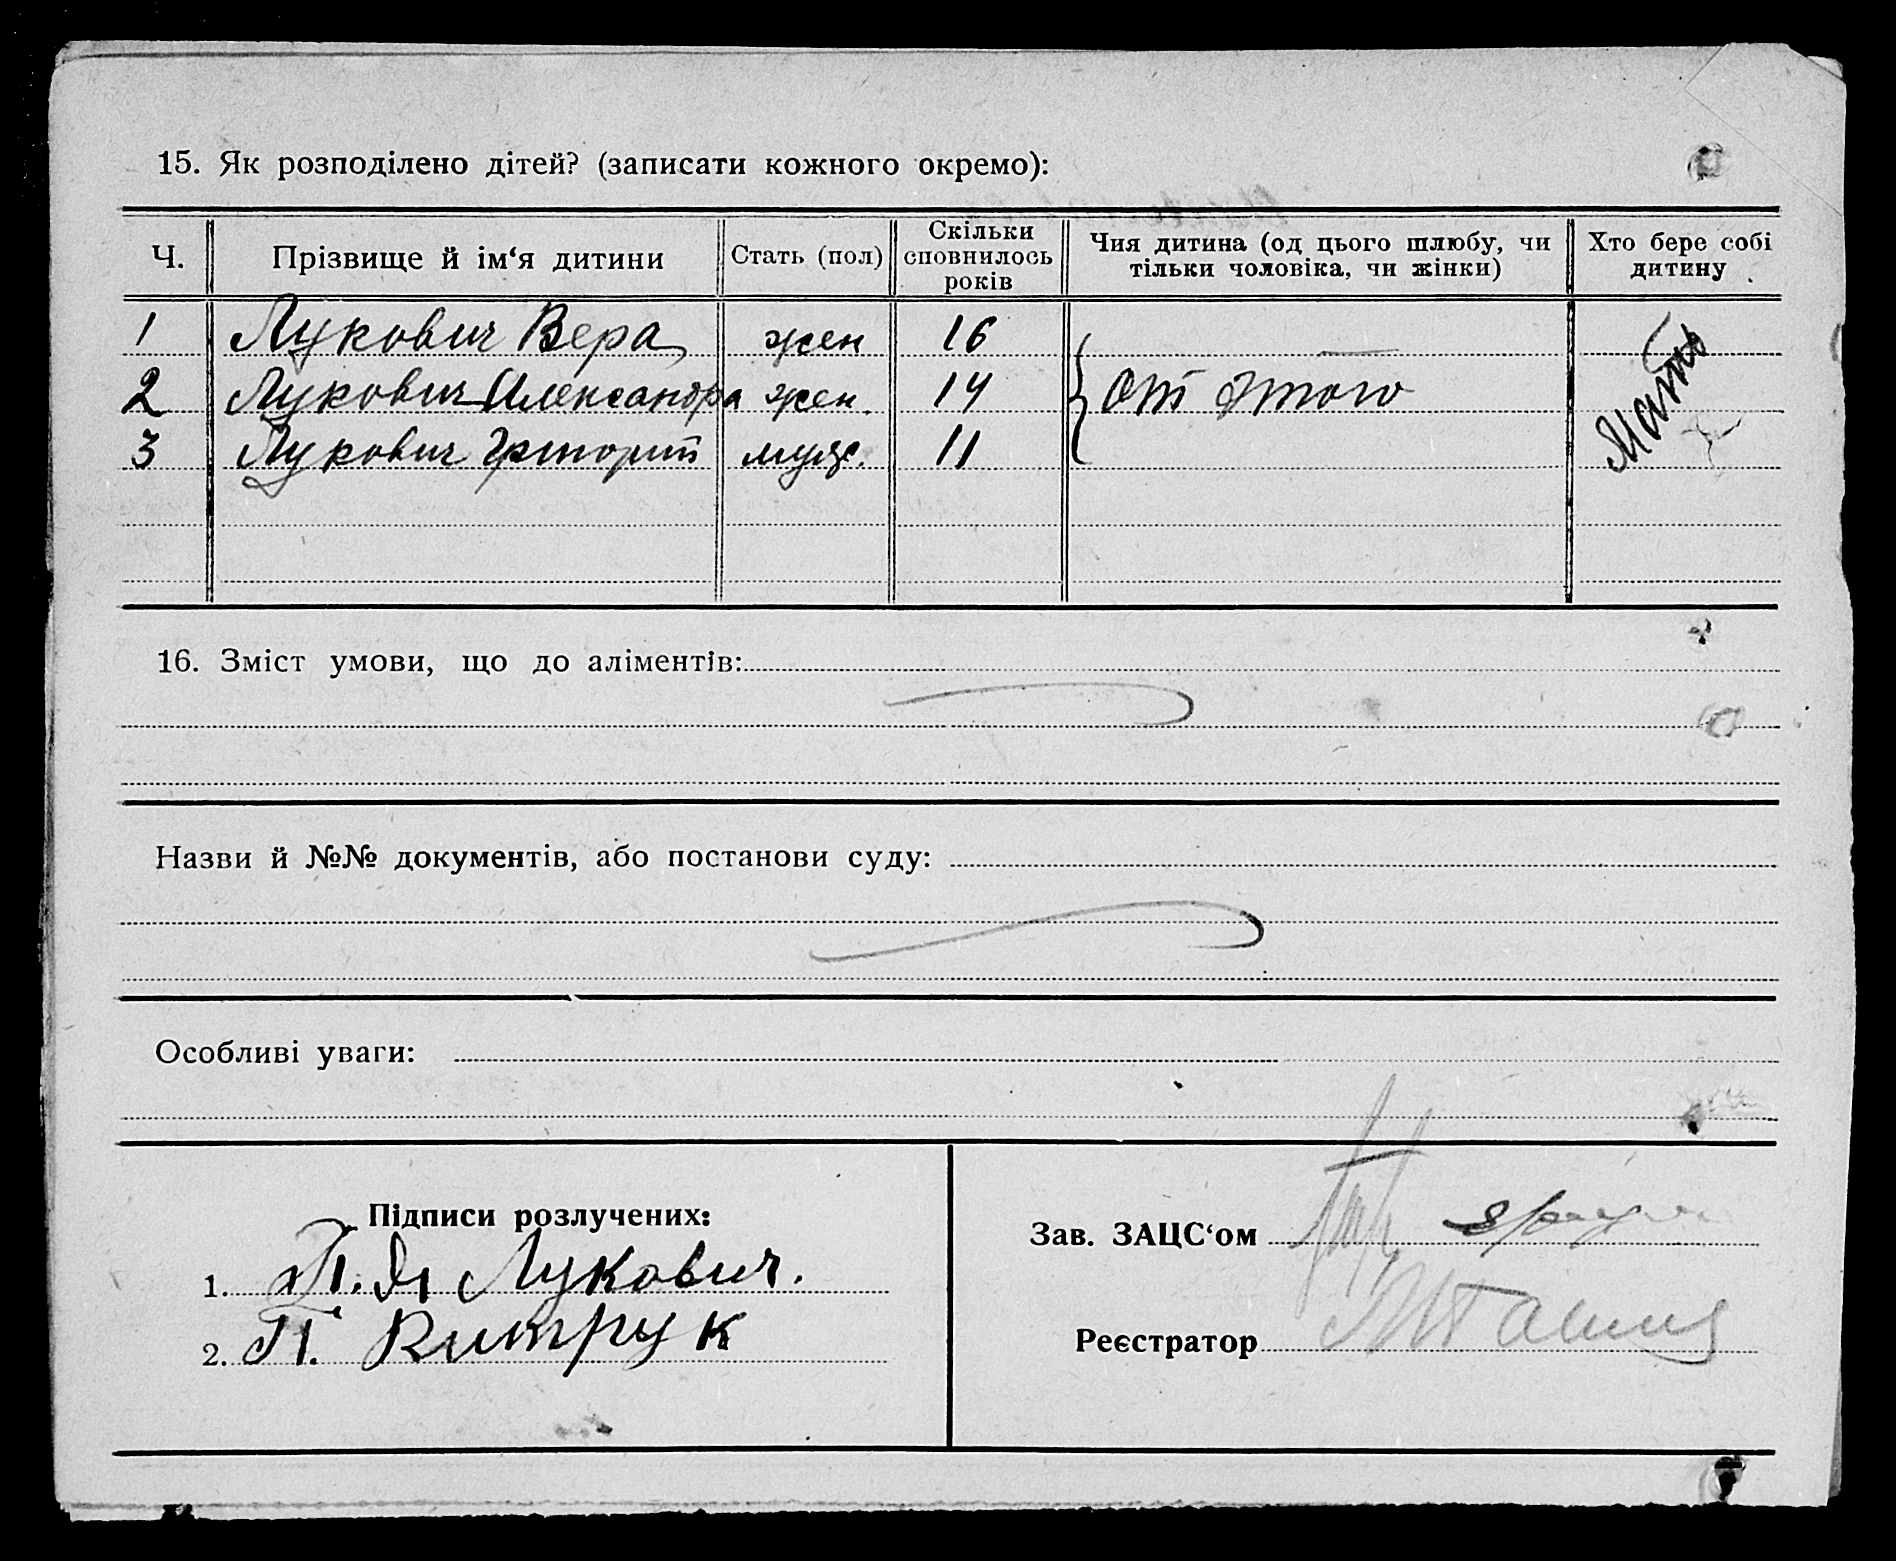 15. Як розподілено дітей? (записати кожного окремо):
Ч. Прізвище й ім‘я дитини Стать (пол) Скільки сповнилось років Чия дитина (од цього шлюбу, чи тільки чоловіка, чи жінки) Хто бере собі дитину
1 Лукович Вера жен 16
2 Лукович Александра жен. 14 от этого Мать
3 Лукович Григорий муж. 11
16. Зміст умови, що до аліментів:
Назви й №№ документів, або постанови суду:
Особливі уваги:
Підписи розлучених:
1. П. Я Лукович.
2. П. Витрук
Зав. ЗАЦС‘ом
Реєстратор